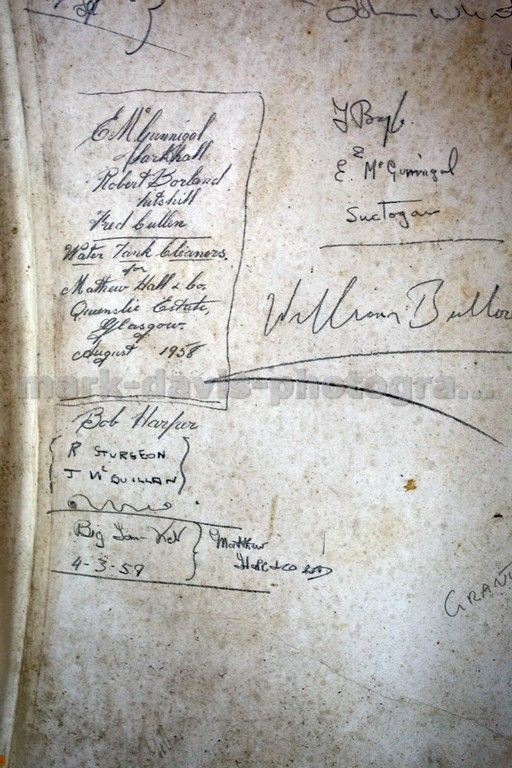 E. McGunnigal
Larkhall
Robert Borland
Nitshill
Fred Cullen
Water Tank Cleaners
for
Matthew Hall & Co.
Queenslie Estate,
Glasgow.
August 1958
J Boyle
E McGunnigal
William
mark-davis-photogra...
Bob Harper
R STURGEON
J McQUILLAN
Big Ian
4-3-59
Matthew
Hall & Co Ltd
GRANT